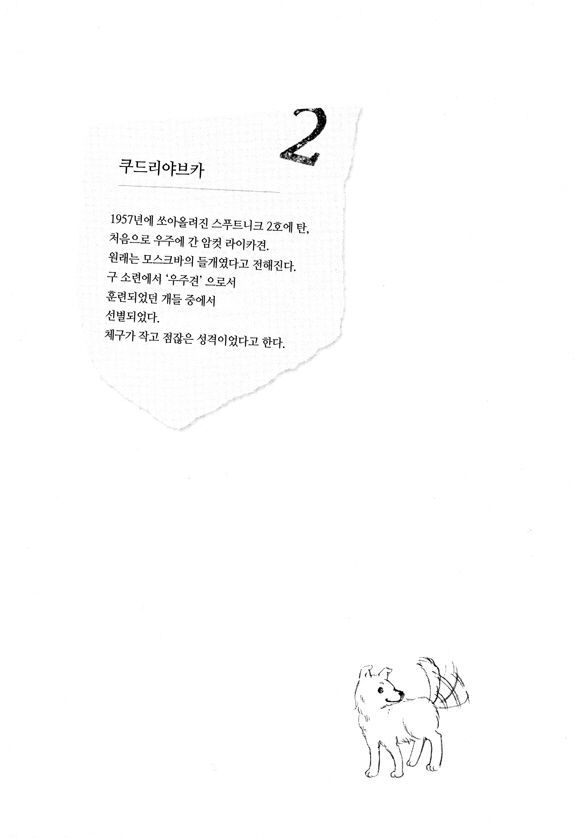 2
쿠드리야브카
1957년에 쏘아올려진 스푸트니크 2호에 탄,
처음으로 우주에 간 암컷 라이카견.
원래는 모스크바의 들개였다고 전해진다.
구 소련에서 ‘우주견’ 으로서
훈련되었던 개들 중에서
선별되었다.
체구가 작고 점잖은 성격이었다고 한다.